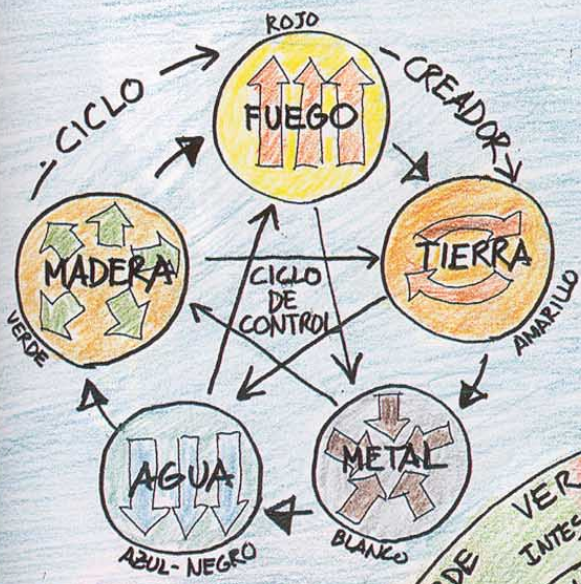 ROJO
CICLO
CREADOR
FUEGO
MADERA
TIERRA
CICLO
DE
CONTROL
VERDE
AMARILLO
AGUA
METAL
AZUL-NEGRO
BLANCO